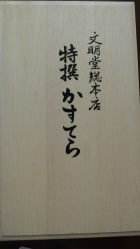 文明堂総本店
特撰かすてら